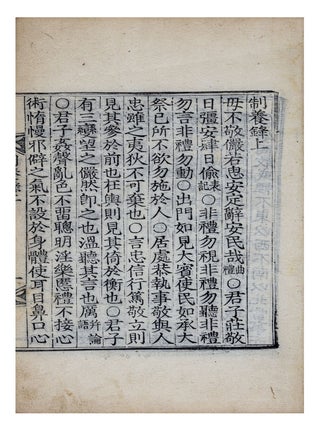 制養錄上
毋不敬儼若思安定辭安民哉曲禮○君子莊敬
日彊安肆日偷表記○非禮勿視非禮勿聽非禮
勿言非禮勿動○出門如見大賓使民如承大
祭己所不欲勿施於人○居處恭執事敬與人
忠雖之夷狄不可棄也○言忠信行篤敬立則
見其參於前也在輿則見其倚於衡也○君子
有三變望之儼然即之也溫聽其言也厲並論語
○君子姦聲亂色不留聰明淫樂慝禮不接心
術惰慢邪僻之氣不設於身體使耳目鼻口心